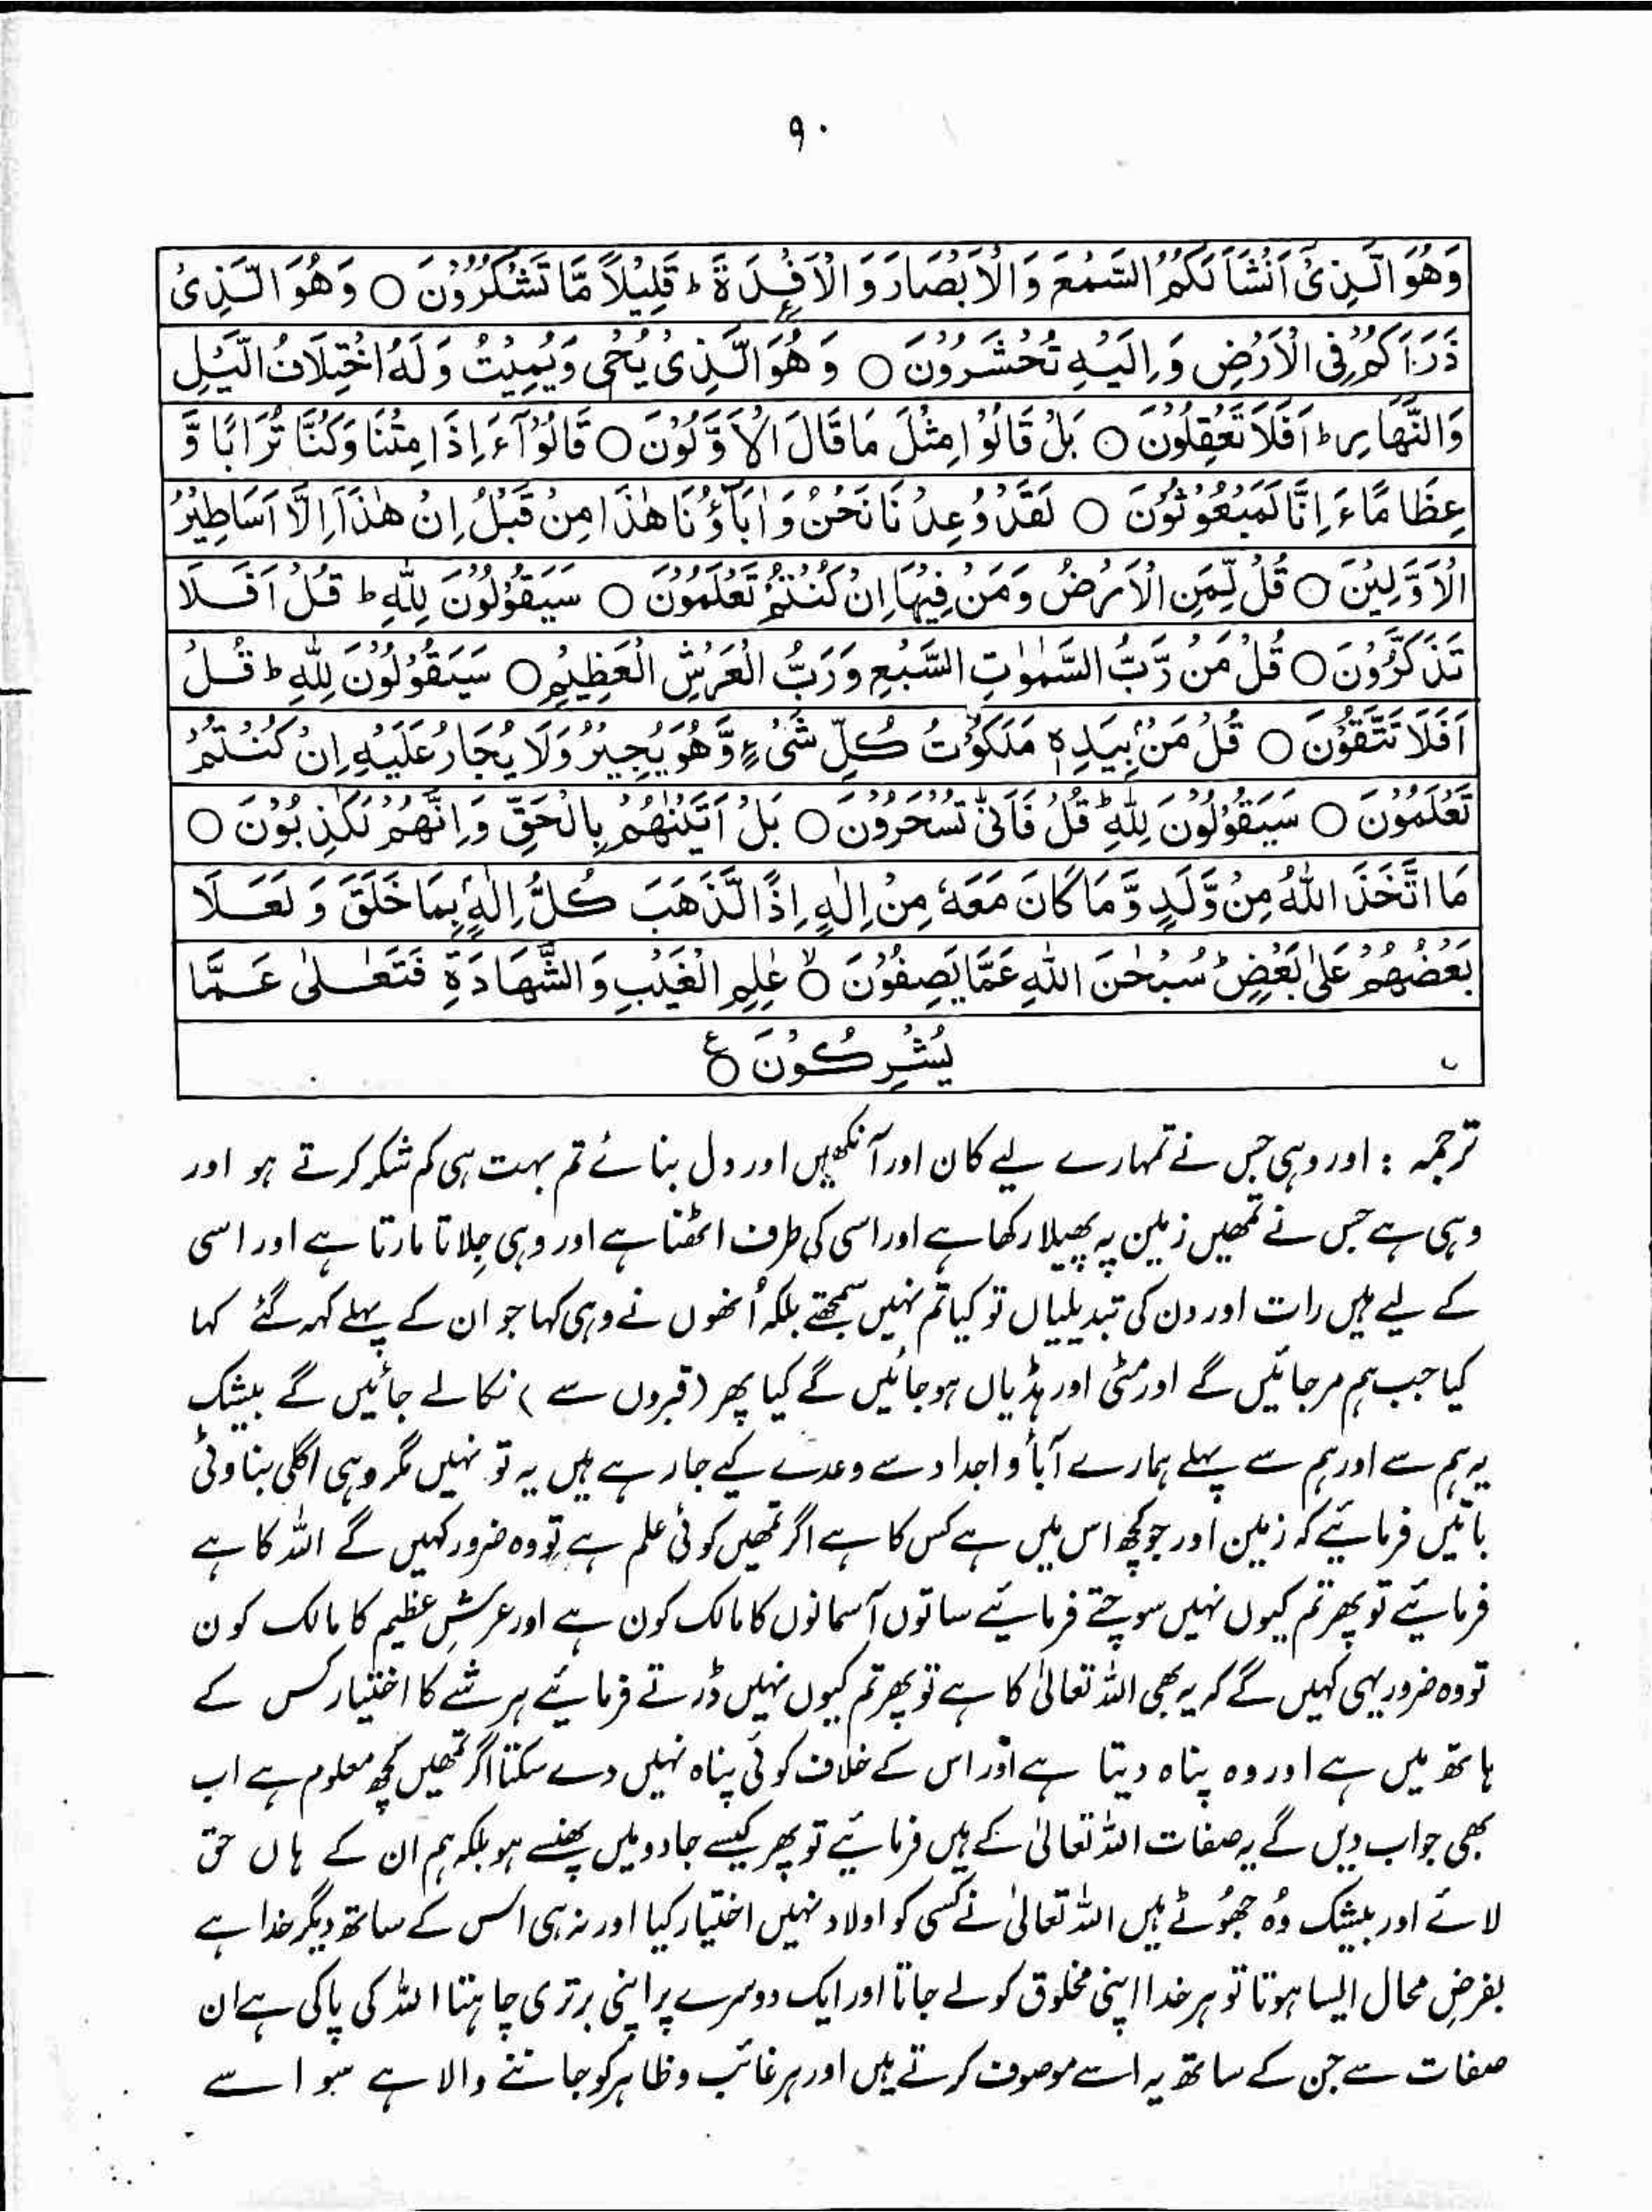 ۹۰
وَهُوَ الَّذِیْۤ اَنْشَاَ لَكُمُ السَّمْعَ وَ الْاَبْصَارَ وَ الْاَفْـِٕدَةَ ؕ قَلِیْلًا مَّا تَشْكُرُوْنَ ○ وَهُوَ الَّذِیْ
ذَرَاَكُمْ فِی الْاَرْضِ وَ اِلَیْهِ تُحْشَرُوْنَ ○ وَ هُوَ الَّذِیْ یُحْیٖ وَیُمِیْتُ وَ لَهُ اخْتِلَافُ الَّیْلِ
وَالنَّهَارِ ؕ اَفَلَا تَعْقِلُوْنَ ○ بَلْ قَالُوْا مِثْلَ مَا قَالَ الْاَوَّلُوْنَ ○ قَالُوْۤا ءَاِذَا مِتْنَا وَكُنَّا تُرَابًا وَّ
عِظَامًا ءَاِنَّا لَمَبْعُوْثُوْنَ ○ لَقَدْ وُعِدْنَا نَحْنُ وَ اٰبَآؤُنَا هٰذَا مِنْ قَبْلُ اِنْ هٰذَاۤ اِلَّاۤ اَسَاطِیْرُ
الْاَوَّلِیْنَ ○ قُلْ لِّمَنِ الْاَرْضُ وَمَنْ فِیْهَاۤ اِنْ كُنْتُمْ تَعْلَمُوْنَ ○ سَیَقُوْلُوْنَ لِلّٰهِ ؕ قُلْ اَفَلَا
تَذَكَّرُوْنَ ○ قُلْ مَنْ رَّبُّ السَّمٰوٰتِ السَّبْعِ وَرَبُّ الْعَرْشِ الْعَظِیْمِ ○ سَیَقُوْلُوْنَ لِلّٰهِ ؕ قُلْ
اَفَلَا تَتَّقُوْنَ ○ قُلْ مَنْۢ بِیَدِهٖ مَلَكُوْتُ كُلِّ شَیْءٍ وَّهُوَ یُجِیْرُ وَلَا یُجَارُ عَلَیْهِ اِنْ كُنْتُمْ
تَعْلَمُوْنَ ○ سَیَقُوْلُوْنَ لِلّٰهِ ؕ قُلْ فَاَنّٰی تُسْحَرُوْنَ ○ بَلْ اَتَیْنٰهُمْ بِالْحَقِّ وَ اِنَّهُمْ لَكٰذِبُوْنَ ○
مَا اتَّخَذَ اللّٰهُ مِنْ وَّلَدٍ وَّ مَا كَانَ مَعَهٗ مِنْ اِلٰهٍ اِذًا لَّذَهَبَ كُلُّ اِلٰهٍۭ بِمَا خَلَقَ وَ لَعَلَا
بَعْضُهُمْ عَلٰی بَعْضٍ ؕ سُبْحٰنَ اللّٰهِ عَمَّا یَصِفُوْنَ ○ۙ عٰلِمِ الْغَیْبِ وَ الشَّهَادَةِ فَتَعٰلٰی عَمَّا
یُشْرِكُوْنَ ○ع
ترجمہ : اور وہی جس نے تمہارے لیے کان اور آنکھیں اور دل بنائے تم بہت ہی کم شکر کرتے ہو اور
وہی ہے جس نے تمھیں زمین پہ پھیلا رکھا ہے اور اسی کی طرف اٹھنا ہے اور وہی جِلاتا مارتا ہے اور اسی
کے لیے ہیں رات اور دن کی تبدیلیاں تو کیا تم نہیں سمجھتے بلکہ اُنھوں نے وہی کہا جو ان کے پہلے کہہ گئے کہا
کیا جب ہم مرجائیں گے اور مٹی اور ہڈیاں ہوجائیں گے کیا پھر (قبروں سے) نکالے جائیں گے بیشک
یہ ہم سے اور ہم سے پہلے ہمارے آباؤ اجداد سے وعدے کیے جارہے ہیں یہ تو نہیں مگر وہی اگلی بناوٹی
باتیں فرمائیے کہ زمین اور جو کچھ اس میں ہے کس کا ہے اگر تمھیں کوئی علم ہے تو وہ ضرور کہیں گے اللہ کا ہے
فرمائیے تو پھر تم کیوں نہیں سوچتے فرمائیے ساتوں آسمانوں کا مالک کون ہے اور عرشِ عظیم کا مالک کون
تو وہ ضرور یہی کہیں گے کہ یہ بھی اللہ تعالیٰ کا ہے تو پھر تم کیوں نہیں ڈرتے فرمائیے ہر شے کا اختیار کس کے
ہاتھ میں ہے اور وہ پناہ دیتا ہے اور اس کے خلاف کوئی پناہ نہیں دے سکتا اگر تمھیں کچھ معلوم ہے اب
بھی جواب دیں گے یہ صفات اللہ تعالیٰ کے ہیں فرمائیے تو پھر کیسے جادو میں پھنسے ہو بلکہ ہم ان کے ہاں حق
لائے اور بیشک وُہ جھُوٹے ہیں اللہ تعالیٰ نے کسی کو اولاد نہیں اختیار کیا اور نہ ہی اس کے ساتھ دیگر خدا ہے
بفرضِ محال ایسا ہوتا تو ہر خدا اپنی مخلوق کو لے جاتا اور ایک دوسرے پر اپنی برتری چاہتا اللہ کی پاکی ہے ان
صفات سے جن کے ساتھ یہ اسے موصوف کرتے ہیں اور ہر غائب و ظاہر کو جاننے والا ہے سو اسے